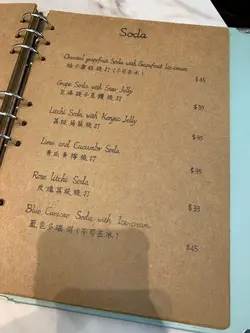 Soda
Oriental grapefruit Soda with Grapefruit Ice-cream
柚子蜜梳打(不可走冰) $45
Grape Soda with Star Jelly
巨峰提子星糖梳打 $35
Litchi Soda with Konjac Jelly
荔枝蒟蒻梳打 $35
Lime and Cucumber Soda
青瓜青檸梳打 $35
Rose litchi Soda
玫瑰荔枝梳打 $33
Blue Curacao Soda with Ice-cream
藍色多腦河(不可走冰) $45